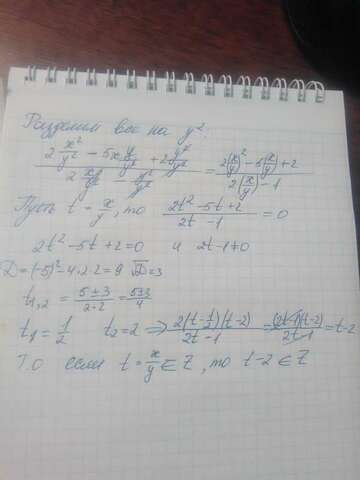 Разделим все на y²:
(2 x²/y² - 5x y/y² + 2 y²/y²) / (2 xy/y² - y²/y²) = (2(x/y)² - 5(x/y) + 2) / (2(x/y) - 1)
Пусть t = x/y, то (2t² - 5t + 2)/(2t - 1) = 0
2t² - 5t + 2 = 0 и 2t - 1 ≠ 0
D = (-5)² - 4·2·2 = 9 √D = 3
t₁,₂ = (5 ± 3)/(2·2) = (5±3)/4
t₁ = 1/2 t₂ = 2 ⇒ 2(t - 1/2)(t - 2)/(2t - 1) = (2t - 1)(t - 2)/(2t - 1) = t - 2
Т.О если t = x/y ∈ Z, то t - 2 ∈ Z